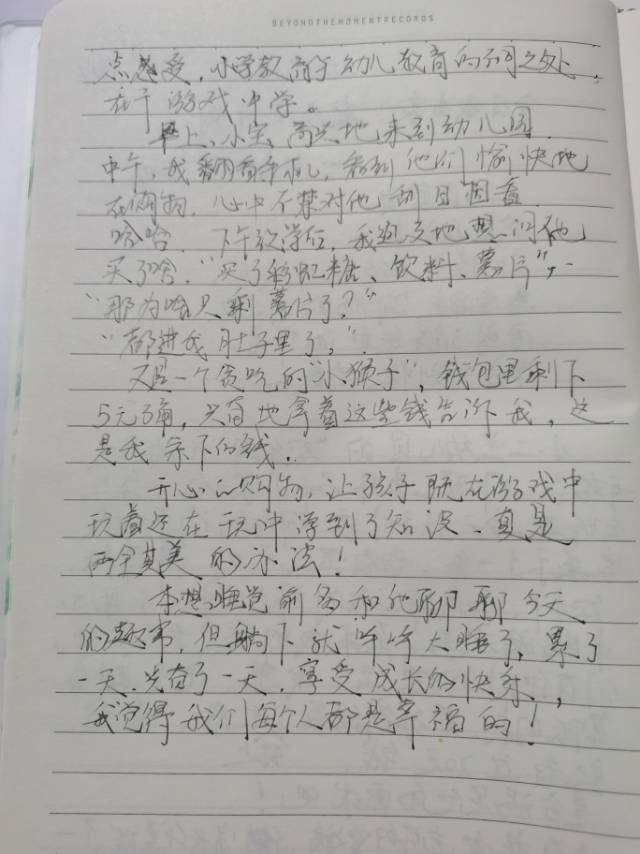 BEYONDTHEMOMENTRECORDS
点感受,小学教育于幼儿教育的不同之处,
在于游戏中学。
早上,小宝高兴地来到幼儿园,
中午,我翻看手机,看到他们愉快地
在购物,心中不禁对他刮目相看,
哈哈,下午放学后,我迫地想问他
买了啥,“买了彩虹糖、饮料、薯片”,
“那为啥只剩薯片了?”
“都进我肚子里了。”
又是一个贪吃的“小猴子”,钱包里剩下
5元3角,兴奋地拿着这些钱告诉我,这
是我余下的钱..
开心的购物,让孩子既在游戏中
玩着还在玩中学到了知识、真是
两全其美的办法!
本想睡觉前多和他聊聊今天
的趣事,但躺下就呼呼大睡了,累了
一天,兴奋了一天,享受成长的快乐,
我觉得我们每个人都是幸福的!